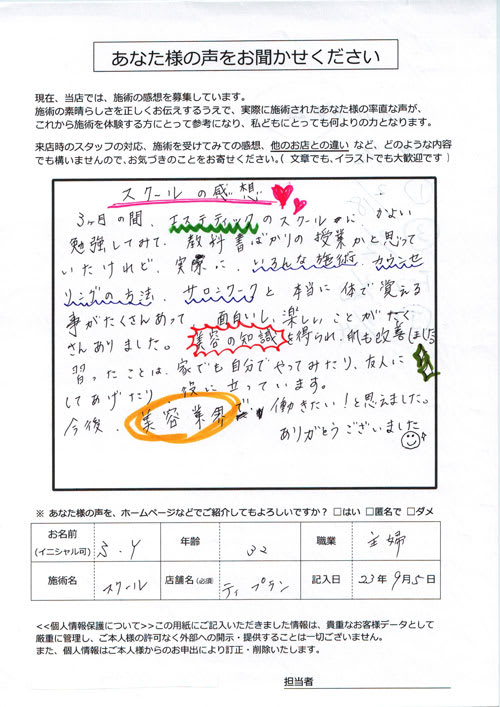 あなた様の声をお聞かせください
現在、当店では、施術の感想を募集しています。
施術の素晴らしさを正しくお伝えするうえで、実際に施術されたあなた様の率直な声が、
これから施術を体験する方にとって参考になり、私どもにとっても何よりの力となります。
来店時のスタッフの対応、施術を受けてみての感想、他のお店との違い など、どのような内容
でも構いませんので、お気づきのことをお寄せください。(文章でも、イラストでも大歓迎です)
スクールの感想
3ヶ月の間、エステティックのスクールに、かよい
勉強してみて、教科書ばかりの授業かと思って
いたけれど、実際に、いろんな施術、カウンセ
リングの方法、サロンワークと本当に体で覚える
事がたくさんあって 面白いし、楽しいことがたく
さんありました。美容の知識を得られ、肌も改善しました
習ったことは、家でも自分でやってみたり、友人に
してあげたり、役に立っています。
今後、美容業界で働きたい!と思えました。
ありがとうございました
※ あなた様の声を、ホームページなどでご紹介してもよろしいですか? □はい □匿名で □ダメ
お名前 (イニシャル可) S.Y 年齢 32 職業 主婦
施術名 スクール 店舗名 (必須) ティ プラン 記入日 23年 9月5日
<<個人情報保護について>>この用紙にご記入いただきました情報は、貴重なお客様データとして
厳重に管理し、ご本人様の許可なく外部への開示・提供することは一切ございません。
また、個人情報はご本人様からのお申出により訂正・削除いたします。
担当者